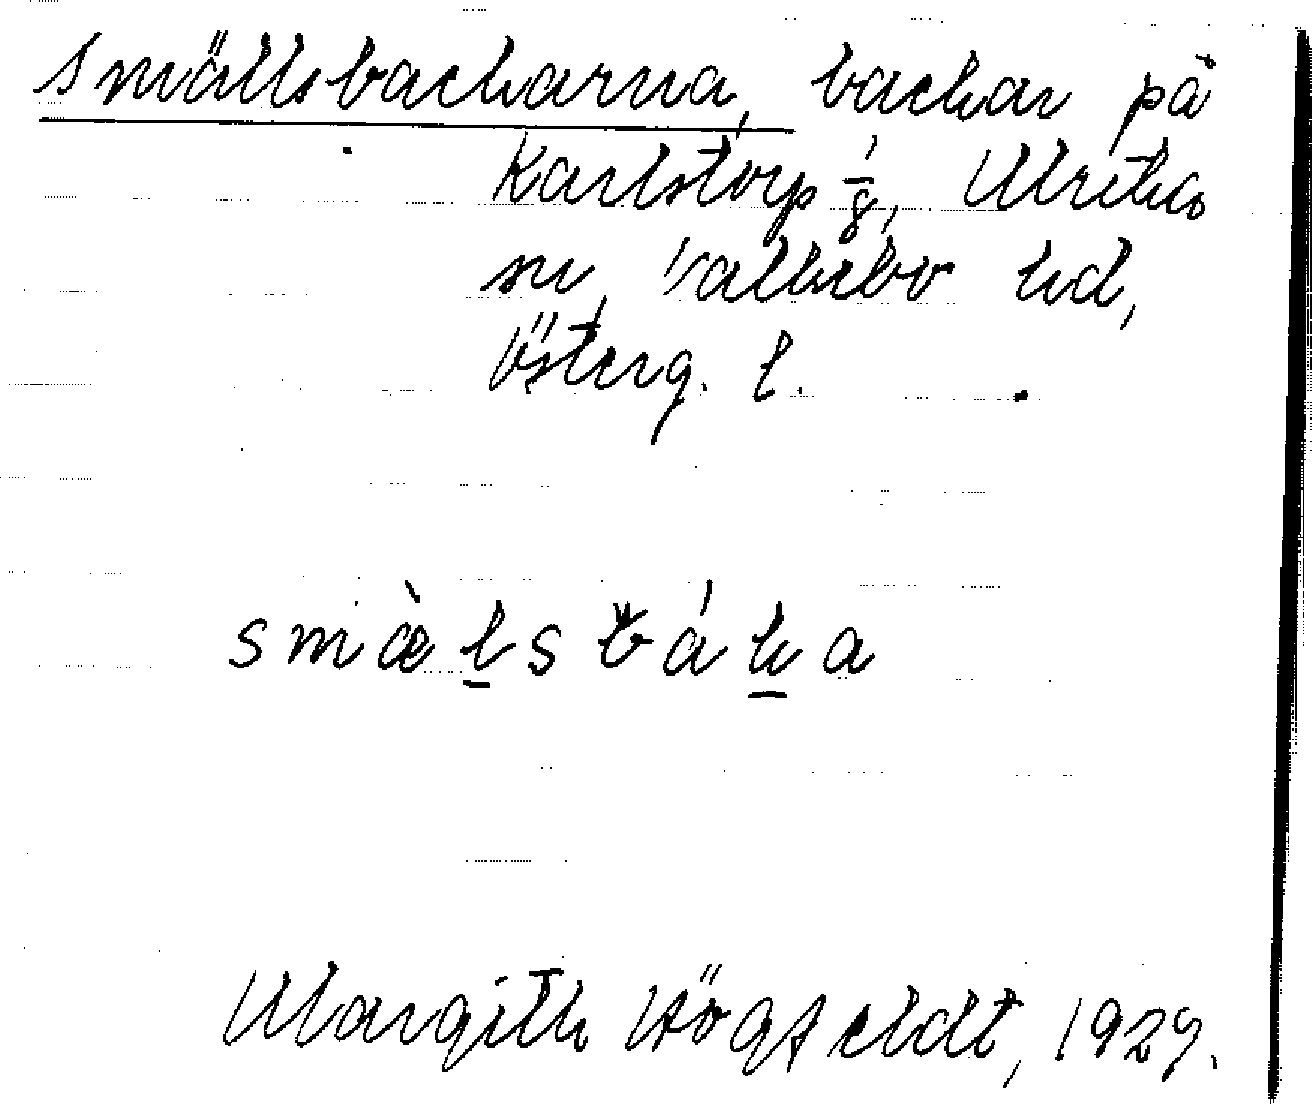 Smällsbackarna, backar på
Karlstorp 1/8, Ulrika
sn, Valkebo hd,
Österg. l.
smæ̀lsbáka
Margith Högfeldt, 1929.